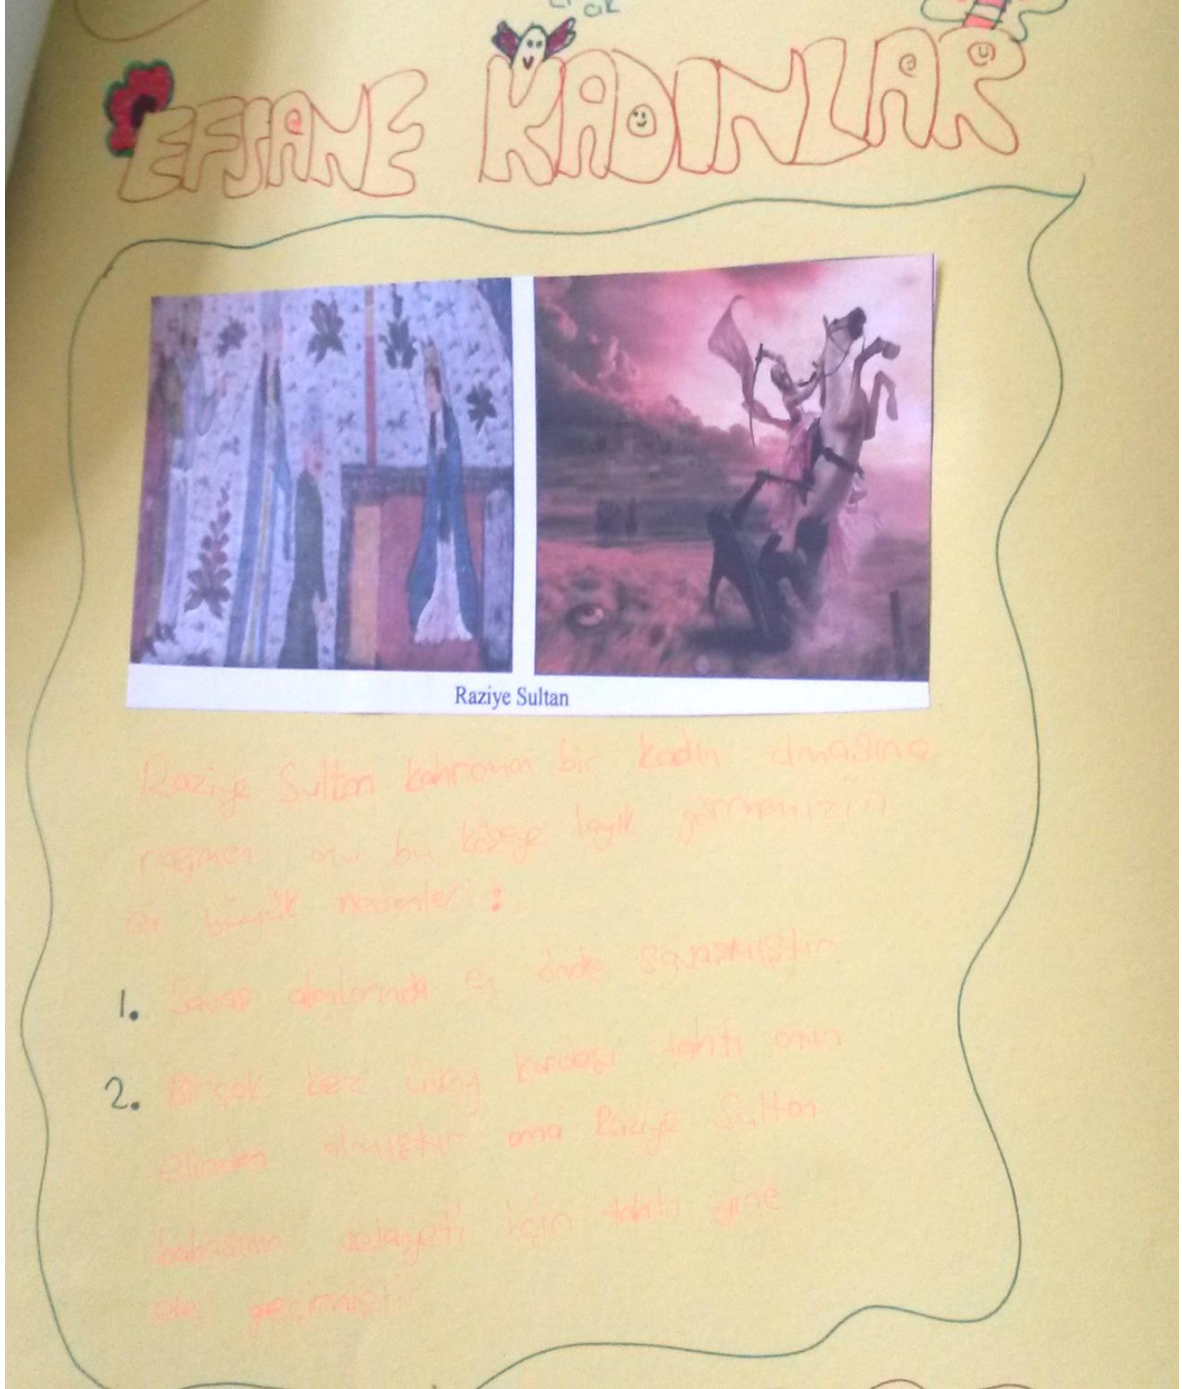 EFSANE KADINLAR
Raziye Sultan
Raziye Sultan kahraman bir kadın olmasına
rağmen onu bu köşeye layık görmemizin
en büyük nedenleri:
1. Savaş alanlarında en önde savaşmıştır
2. Birçok kez üvey kardeşi tahtı onun
elinden almıştır ama Raziye Sultan
babasının için tahtı gine
ele geçirmiştir